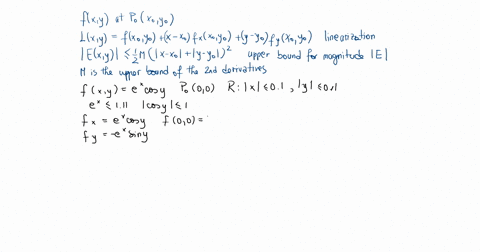 f(x,y) at P₀(x₀,y₀)
L(x,y) = f(x₀,y₀)+(x-x₀)fx(x₀,y₀)+(y-y₀)fy(x₀,y₀) linearization
|E(x,y)| ≤ ½M(|x-x₀|+|y-y₀|)² upper bound for magnitude |E|
M is the upper bound of the 2nd derivatives
f(x,y) = eˣcosy P₀(0,0) R: |x| ≤ 0.1, |y| ≤ 0.1
eˣ ≤ 1.11 |cosy| ≤ 1
fx = eˣcosy f(0,0) =
fy = -eˣsiny